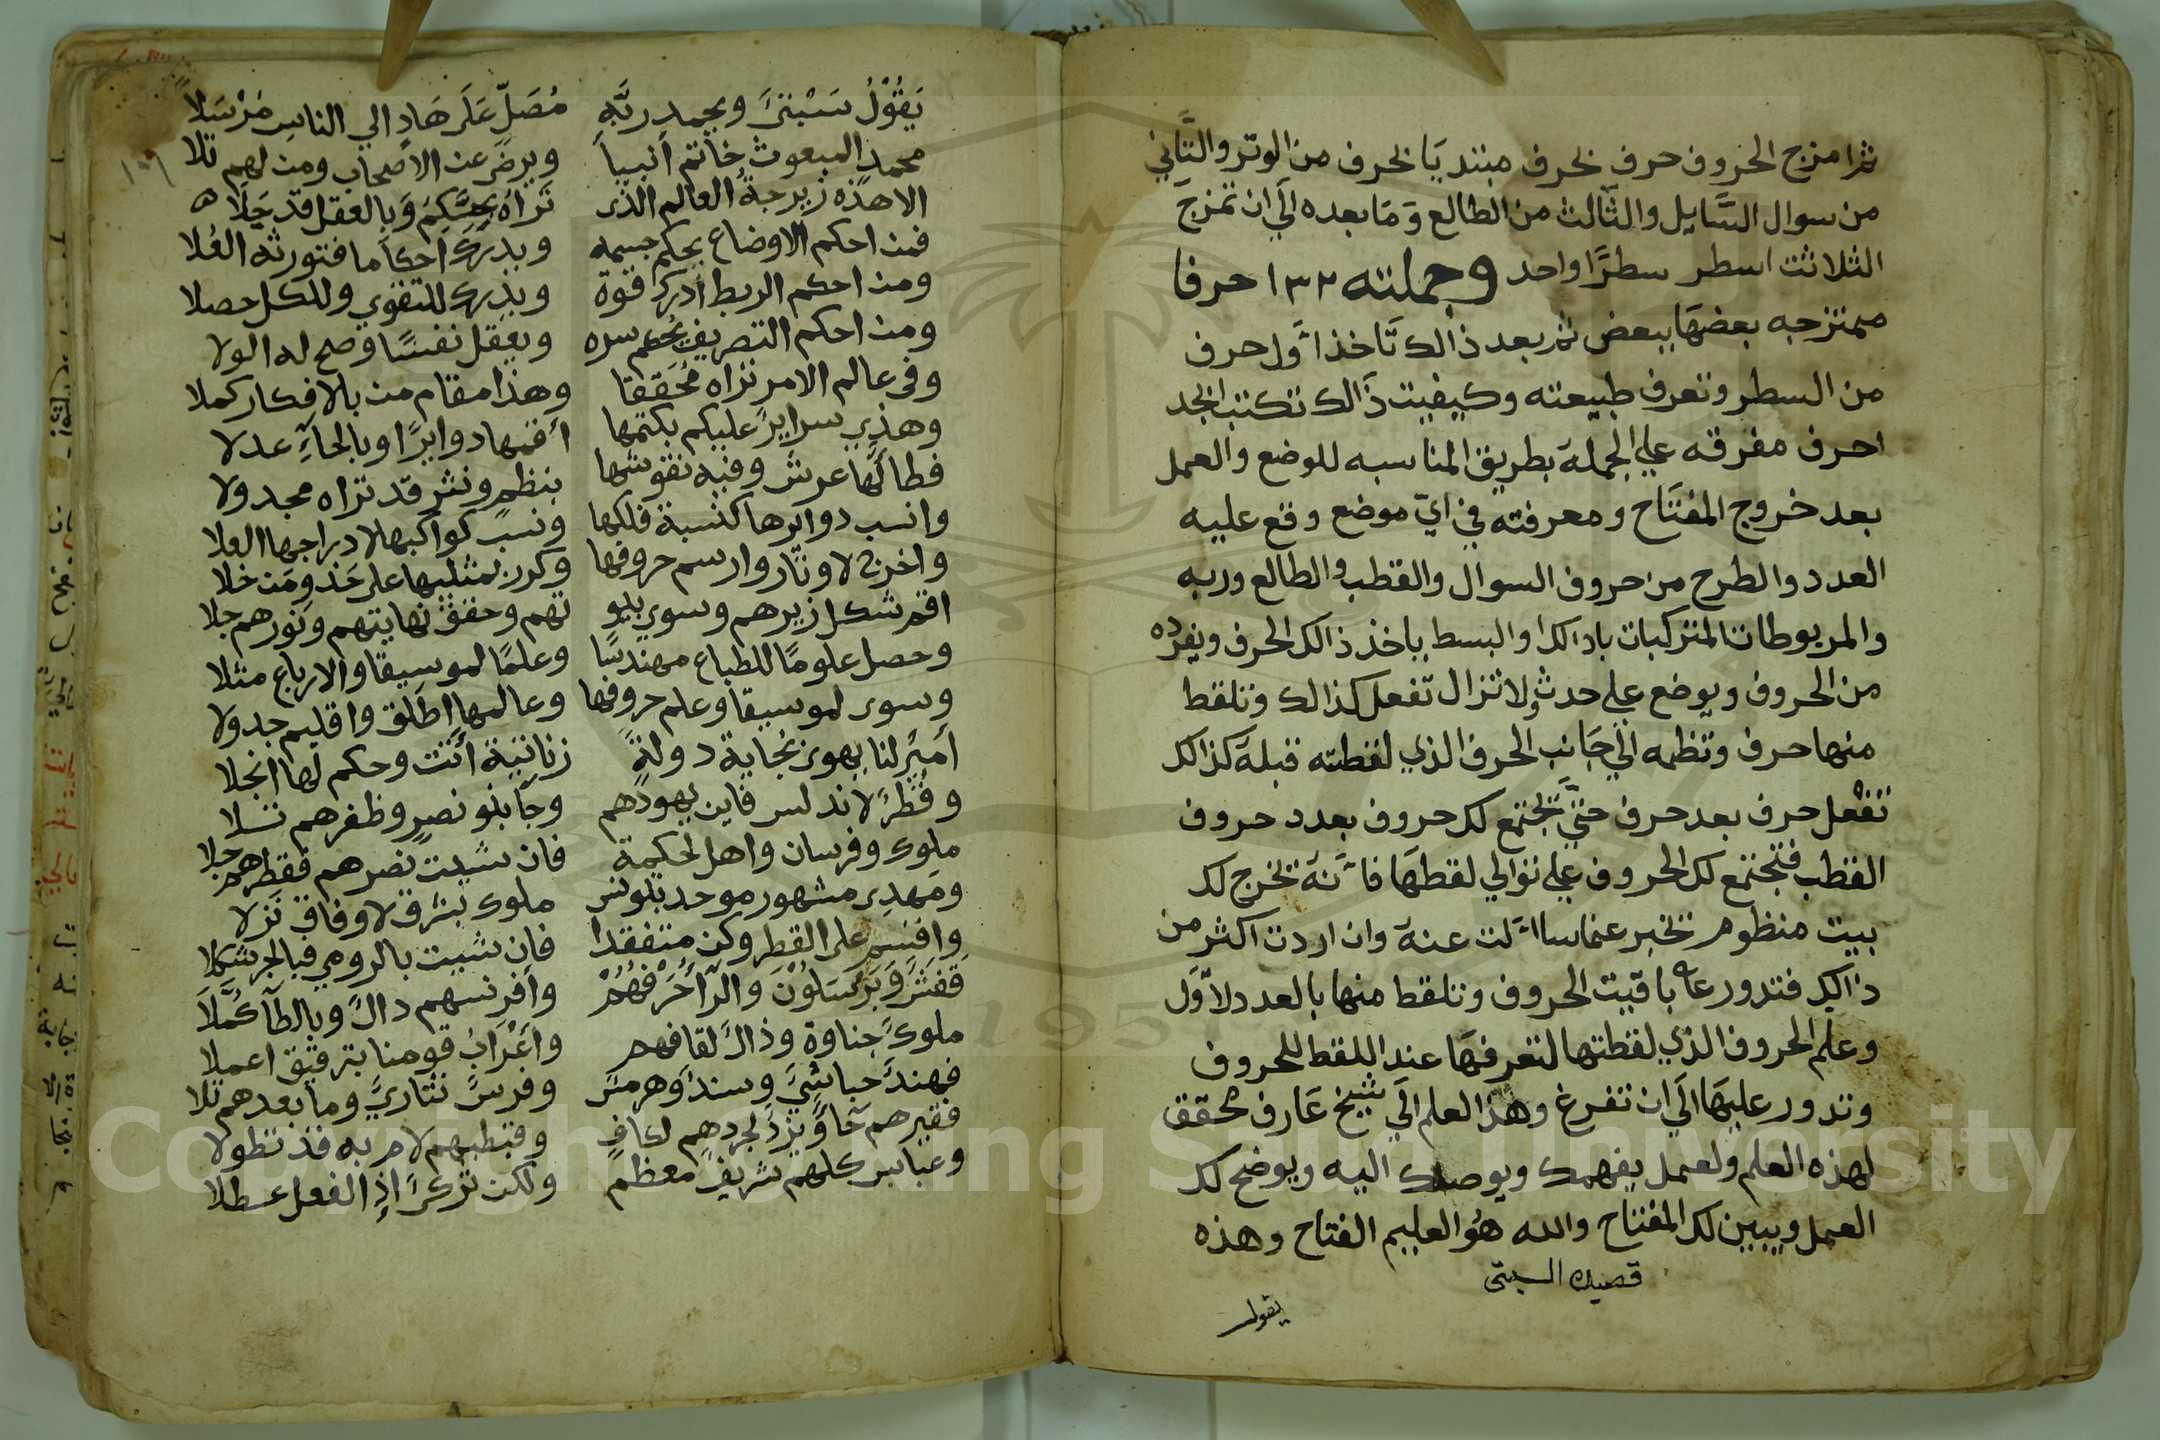 ثم امزج الحروف حرف بحرف مبتديا بحرف من الوتر والثاني
من سوال السايل والثالث من الطالع وما بعده الي ان تمزج
الثلاثت اسطر سطرا واحد وجملته ١٣٢ حرفا
ممتزجه بعضها ببعض ثم بعد ذالك تاخذ اول حرف
من السطر وتعرف طبيعته وكيفيت ذالك تكتب ابجد
احرف مفرقه علي الجملة بطريق المناسبه للوضع والعمل
بعد خروج المفتاح ومعرفته في اي موضع وقع عليه
العدد والطرح من حروف السوال والقطب والطالع وربه
والمربوطات المتركبات والبسط ياخذ ذالك الحرف ويفرده
من الحروف ويوضع علي حدث ولا تزال تفعل كذالك وتلقط
منها حرف وتظمه الي جانب الحرف الذي لقطته قبلة كذالك
تفعل حرف بعد حرف حتي تجتمع لك حروف بعدد حروف
القطب فتجتمع لك الحروف علي توالي لقطها فانه تخرج لك
بيت منظوم تخبر عما ساالت عنه وان اردت اكثر من
ذالك فتدور عا باقيت الحروف وتلقط منها بالعدد لاول
وعلم الحروف الذي لقطتها لتعرفها عند اللقط للحروف
وتدور عليها الي ان تفرغ وهذ العلم الي شيخ عارف محقق
لهذه العلم ولعمل يفهمك ويوصلك اليه ويوضح لك
العمل ويبين لك المفتاح والله هو العليم الفتاح وهذه
قصيده السبتي
يقول
يقول سبتي وبحمد ربه مصل على هاد الي الناس مرسلا
محمد المبعوث خاتم انبيا ويرض عن الاصحاب ومن لهم تلا
الا هذه زيرجة العالم الذى تراه بحكم وبالعقل قد جلا
فمن احكم الاوضاع يحكم جسمه ويدرك احكاما فتورثه العلا
ومن احكم الربط ادرك قوة ويدرك للتقوي وللكل حصلا
ومن احكم التصريف يحكم سره ويعقل نفسا وصح له الولا
وفى عالم الامر تراه محققا وهذا مقام من بالافكار كملا
وهذي سراير عليكم بكتمها اقمها دوايرا وبالحاء عدلا
فطا لها عرش وفيه نقوشها بنظم ونثر قد تراه مجدولا
وانسب دوايرها كنسبة فلكها ونسب كواكبها لادراجها العلا
واخرج لاوتار وارسم حروفها وكرر بمثليها على حذ ومن خلا
اقم شكل زيرهم وسوي بيو تهم وحقق نهايتهم ونورهم جلا
وحصل علوما للطباع مهندسا وعلما لموسيقا والارباع مثلا
وسوى لموسيقا وعلم حروفها وعالمها اطلق واقليم جدولا
امير لنا يهوى بجاية دولة زناتية اتت وحكم لها انجلا
وقطر لاندلس فاين يهودهم وجا بنو نصر وظفرهم تلا
ملوك وفرسان واهل لحكمة فان شيت نصرهم فقطرهم حلا
ومهدى مشهور موحد بتونس ملوك بشرق لاوفاق نزلا
واقسم على القطر وكن متفقدا فان شيت بالرومي فبالحر شكلا
ففنش وبرشلون والرا حرفهم وافرنسهم دال وبالطا كملا
ملوك جناوة وذال لقافهم واعراب قومنا بترقيق اعملا
فهند حباشي وسند وهرمس وفرس تتاري وما بعدهم تلا
فقيرهم حا ويزد لجردهم لكاف وقبطهم لامر به قد تطولا
وعباس كلهم شريف معظم ولكن تركرا اذ الفعل عطلا